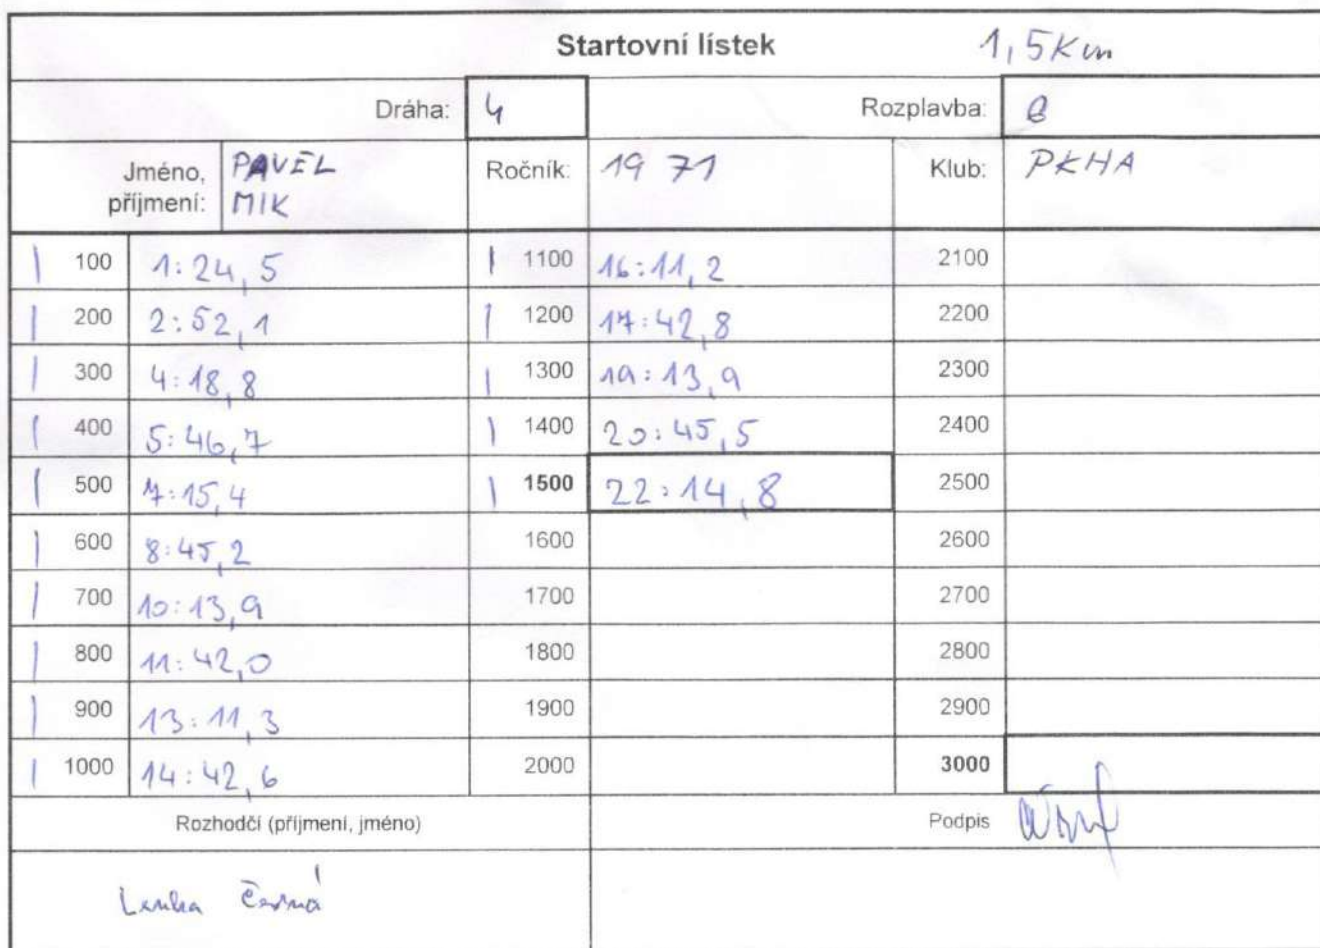 Startovní lístek 1,5Km
Dráha: 4 Rozplavba:
Jméno, příjmení: PAVEL MIK Ročník: 1971 Klub: PKHA
| 100 1:24,5 | 1100 16:11,2 2100
| 200 2:52,1 | 1200 17:42,8 2200
| 300 4:18,8 | 1300 19:13,9 2300
| 400 5:46,7 | 1400 20:45,5 2400
| 500 7:15,4 | 1500 22:14,8 2500
| 600 8:45,2 1600 2600
| 700 10:13,9 1700 2700
| 800 11:42,0 1800 2800
| 900 13:11,3 1900 2900
| 1000 14:42,6 2000 3000
Rozhodčí (příjmení, jméno) Podpis
Lenka Černá